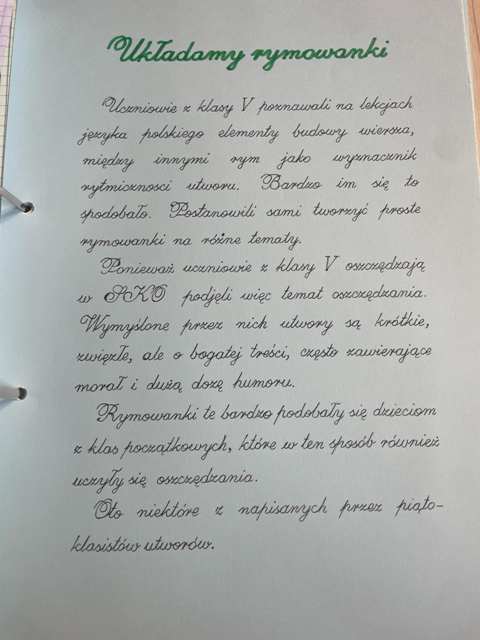 Układamy rymowanki
Uczniowie z klasy V poznawali na lekcjach
języka polskiego elementy budowy wiersza,
między innymi rym jako wyznacznik
rytmiczności utworu. Bardzo im się to
spodobało. Postanowili sami tworzyć proste
rymowanki na różne tematy.
Ponieważ uczniowie z klasy V oszczędzają
w SKO podjęli więc temat oszczędzania.
Wymyślone przez nich utwory są krótkie,
zwięzłe, ale o bogatej treści, często zawierające
morał i dużą dozę humoru.
Rymowanki te bardzo podobały się dzieciom
z klas początkowych, które w ten sposób również
uczyły się oszczędzania.
Oto niektóre z napisanych przez piąto-
klasistów utworów.